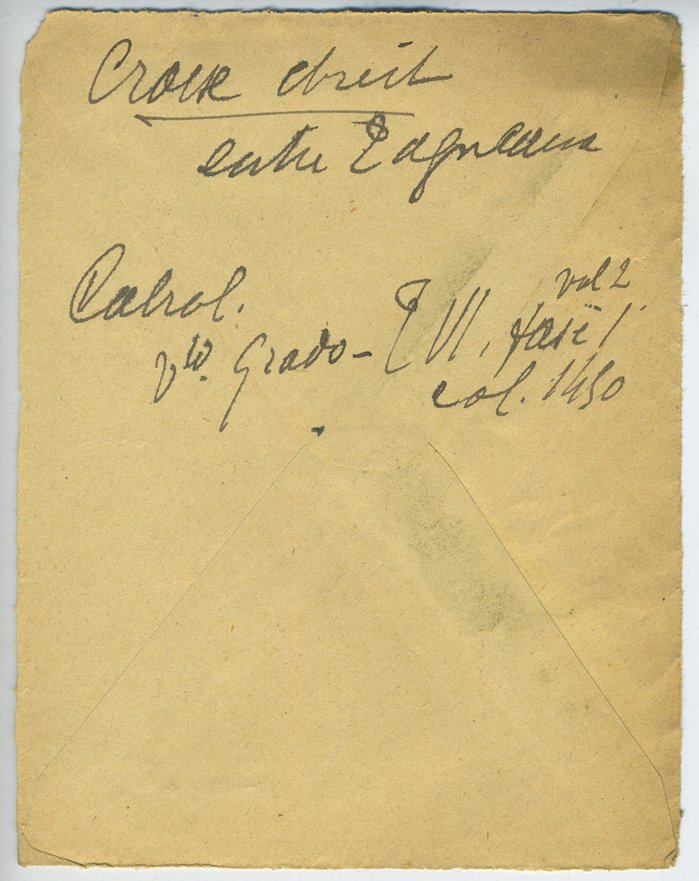 Croix chrét
entre 2 agneaux
Cabrol.
vº Grado - T VI, vol 2
fasc 1
col. 1450